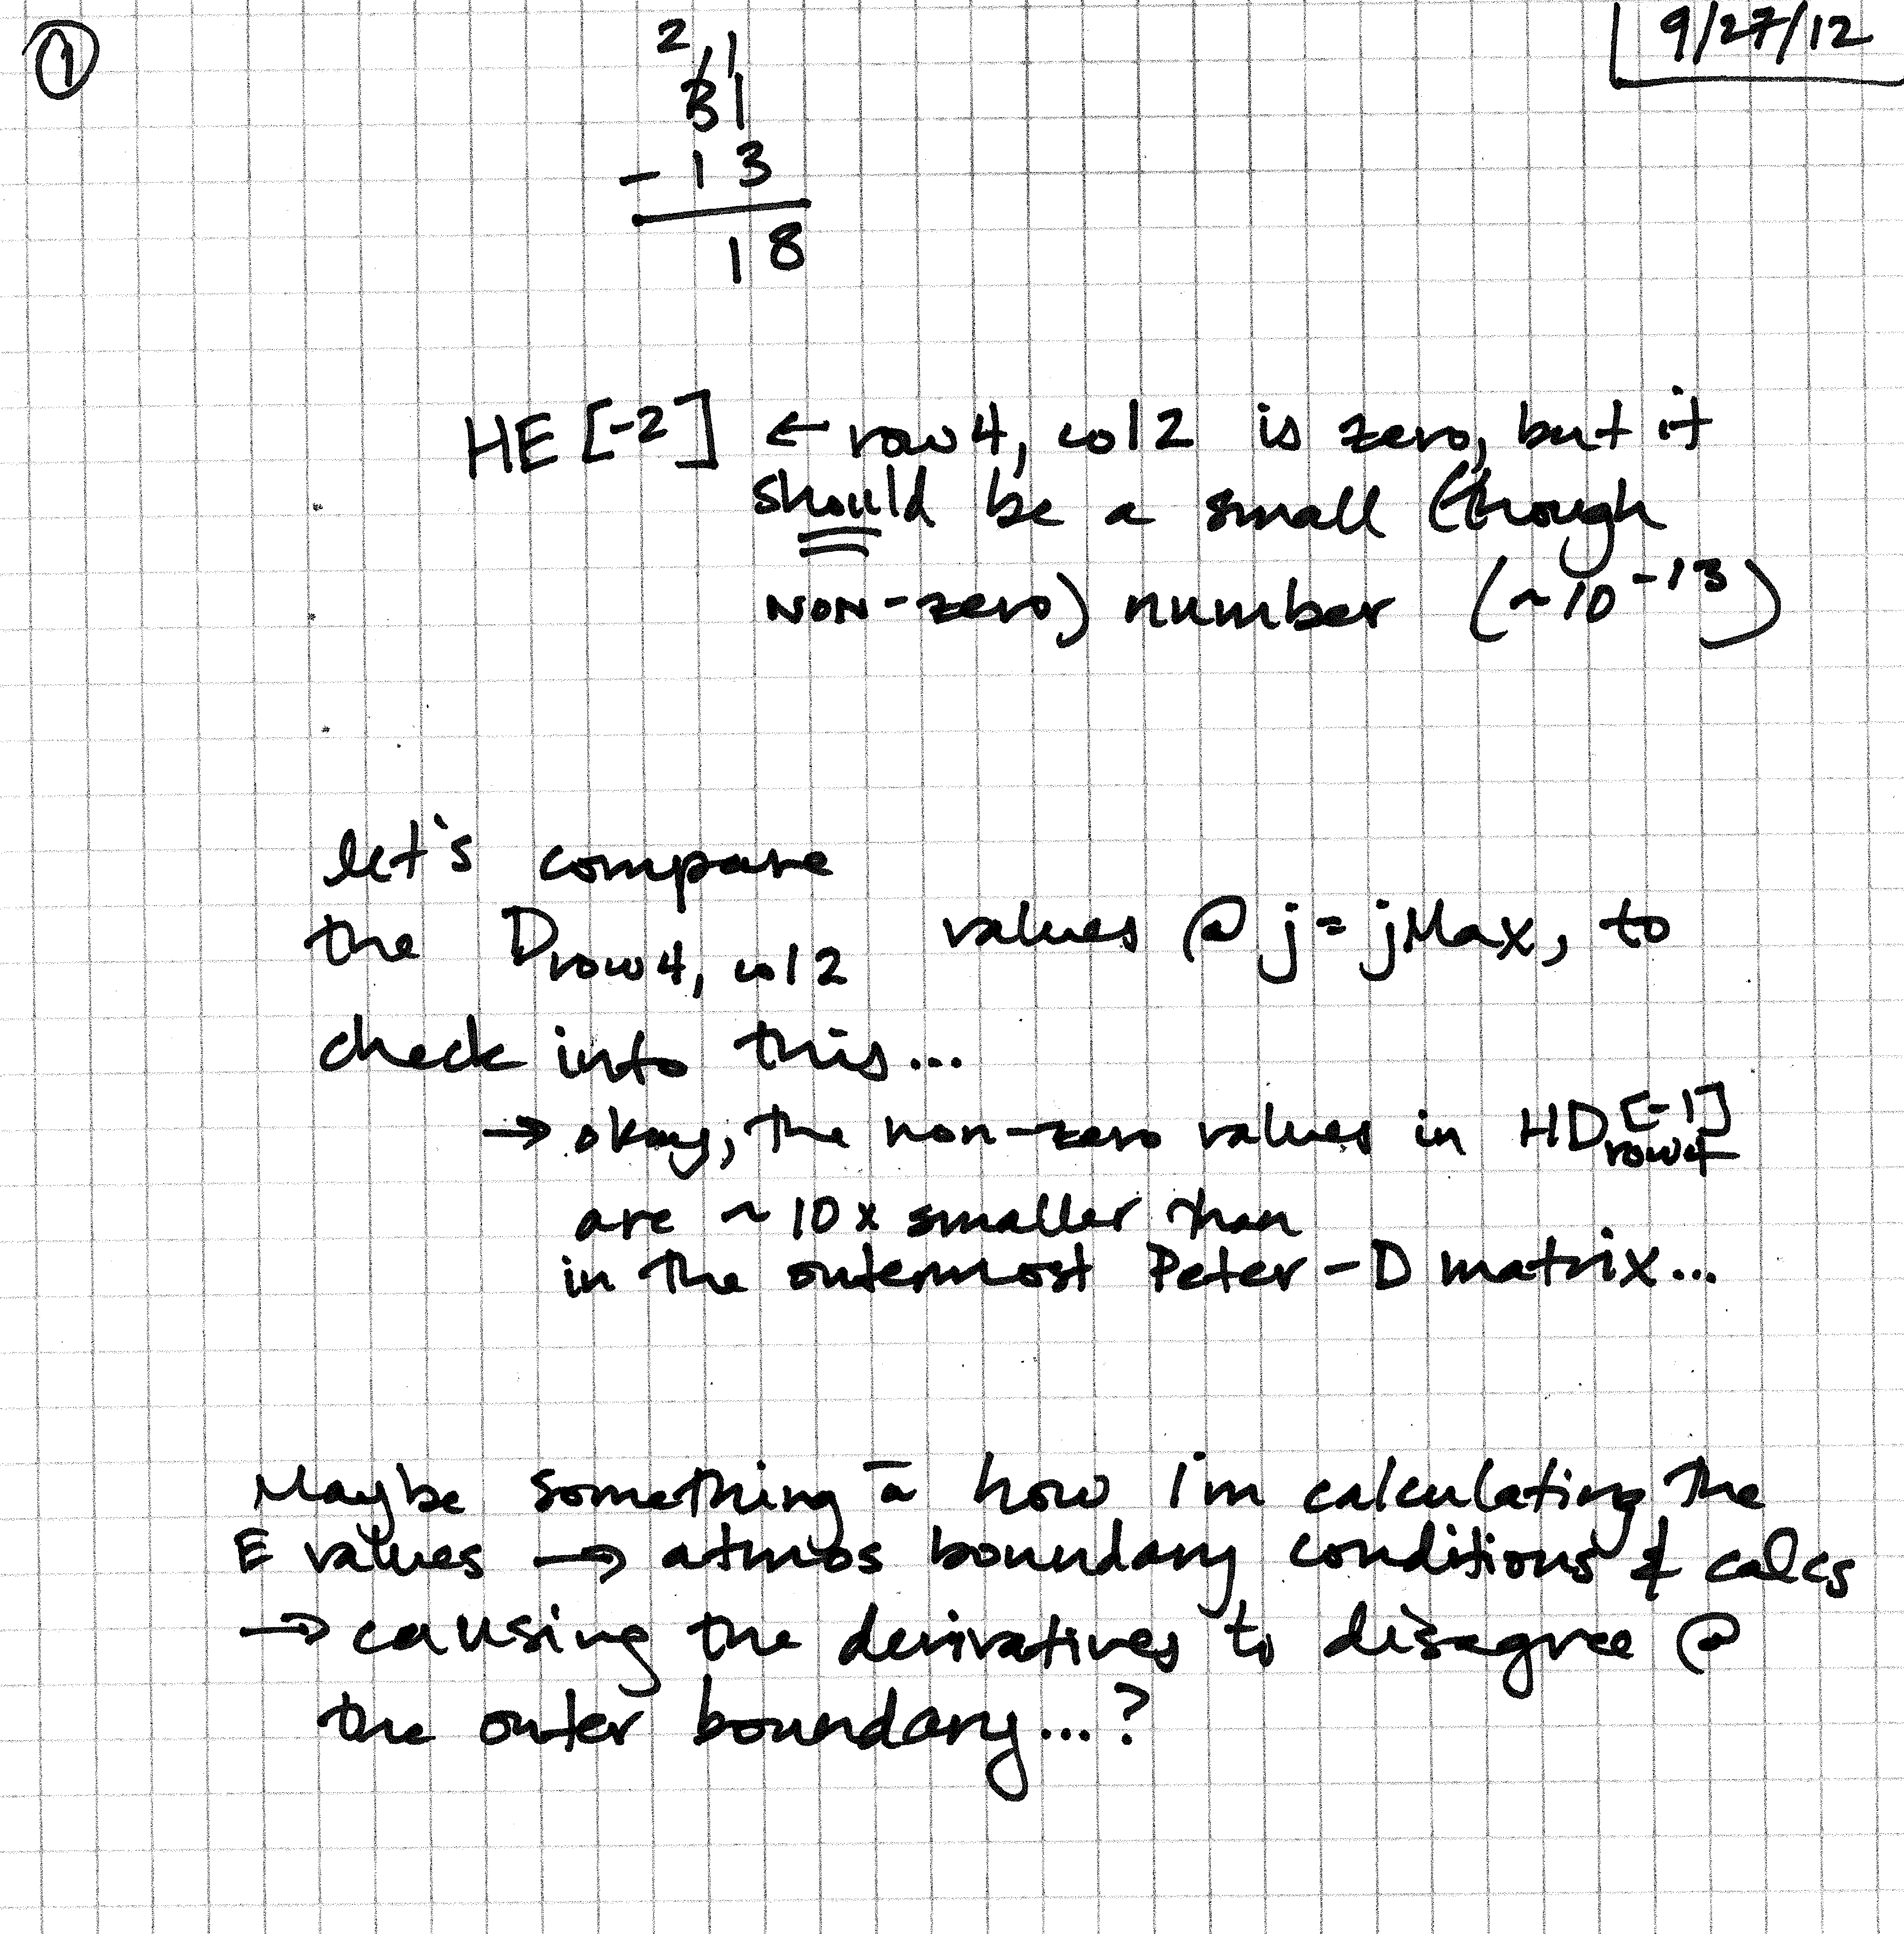 ①
9/27/12
2 1
31
- 13
18
HE[-2] ← row 4, col 2 is zero, but it
should be a small (though
NON-zero) number (~10^-13)
let's compare
the D row 4, col 2 values @ j = jMax, to
check into this...
→ okay, the non-zero values in HD[-1] row 4
are ~10x smaller than
in the outermost Peter-D matrix...
Maybe something c̄ how I'm calculating the
E values → atmos boundary conditions & calcs
→ causing the derivatives to disagree @
the outer boundary...?